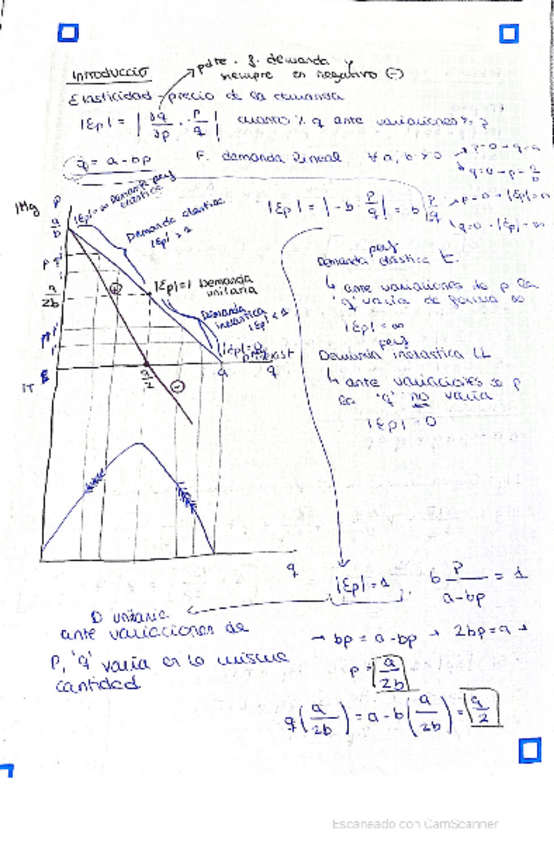 Introducció
pdte. f. demanda y
siempre en negativo (-)
Elasticidad-precio de la demanda
|Ep| = |∂q/∂p · p/q| cuanto % q ante variaciones % p
q = a - bp F. demanda lineal ∀ a, b > 0
|Ep| = |-b p/q| = b p/q
IMg
p
a/b
|Ep| = ∞ Demanda perf elástica
Demanda elástica
|Ep| > 1
a/2b
|Ep| = 1 Demanda
unitaria
Demanda
inelástica
|Ep| < 1
|Ep| = 0
a/2
a
q
IT
q
perf
Demanda elástica
↳ ante variaciones de p la
'q' varia de forma ∞
|Ep| = ∞
perf
Demanda inelastica
↳ ante variaciones de p
la 'q' no varia
|Ep| = 0
|Ep| = 1 . b p/(a-bp) = 1
D unitaria
ante variaciones de
P, 'q' varia en la misma
cantidad
→ bp = a - bp → 2bp = a →
p = a/2b
q(a/2b) = a - b(a/2b) = a/2
Escaneado con CamScanner